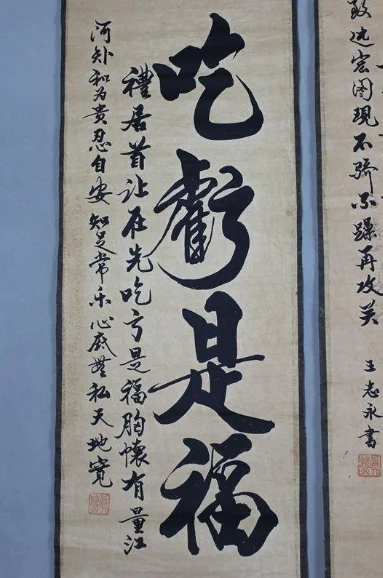 致远宏图現不骄不躁再攻关
王志永書
吃虧是福
禮居首让在先吃亏是福胸懷有量江
河和为贵忍自安知足常乐心底無私天地寬